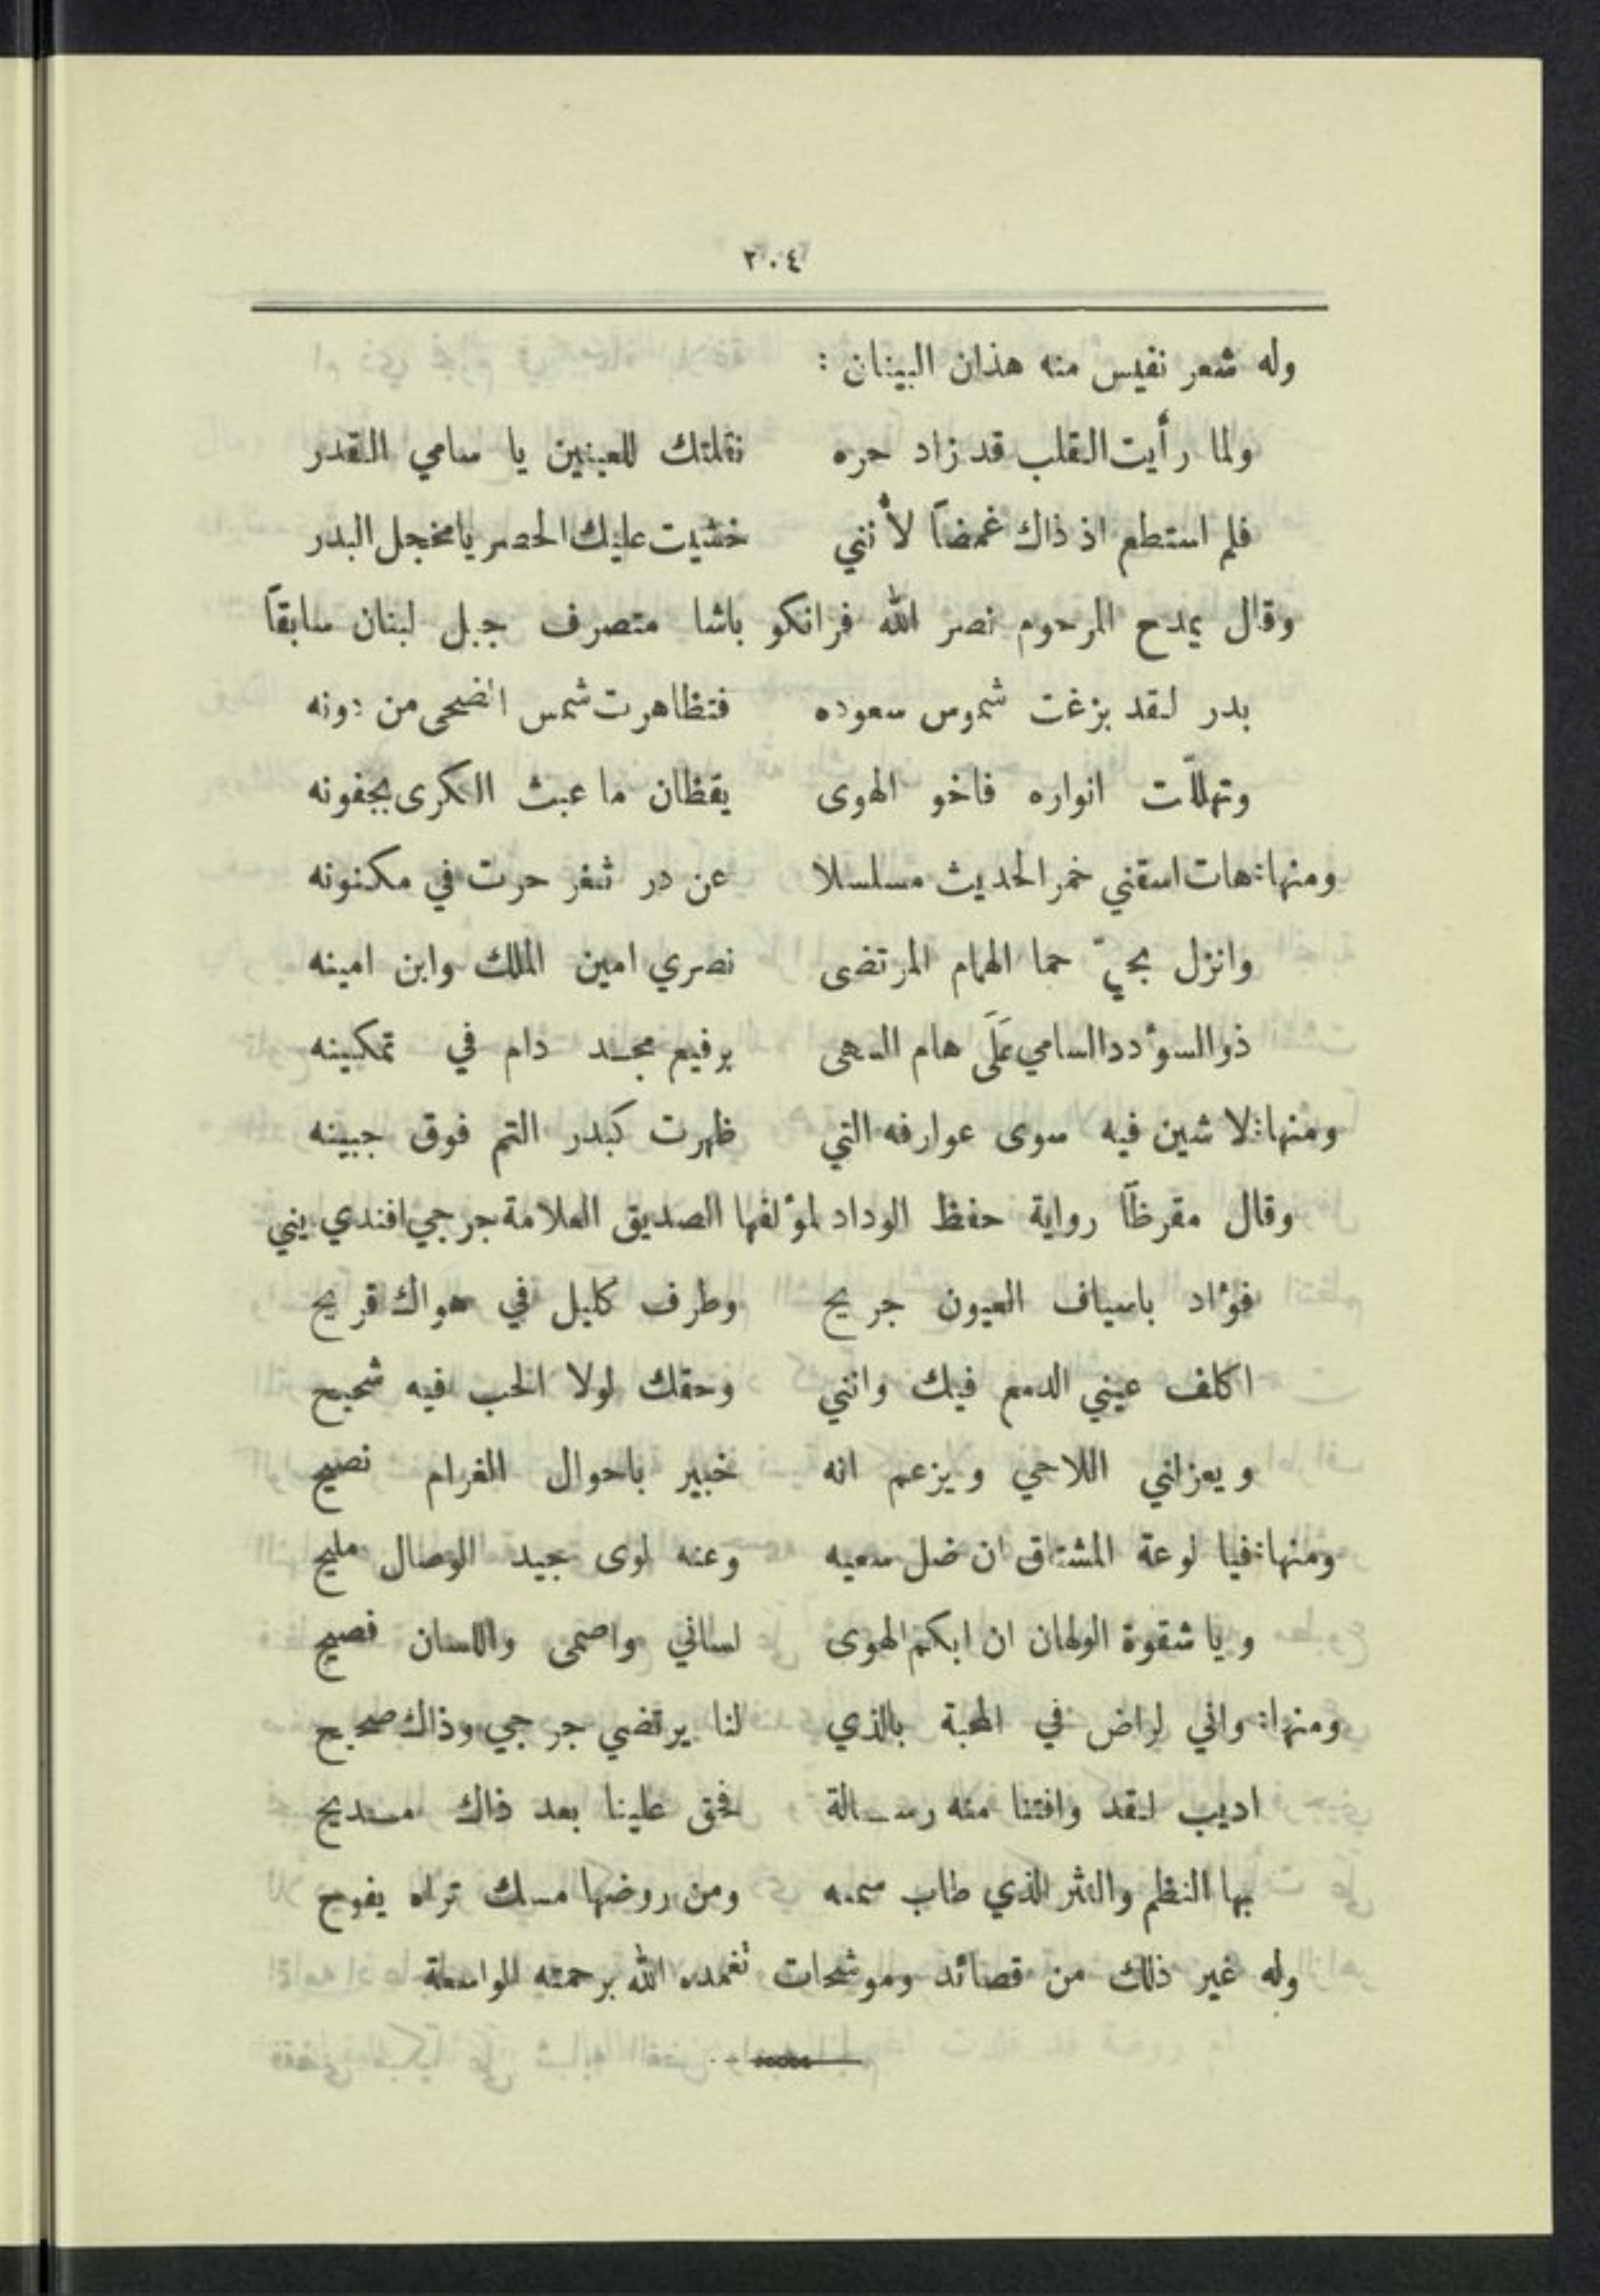 ٢٠٤
وله شعر نفيس منه هذان البيتان :
ولما رأيت القلب قد زاد حره نقلتك للعينين يا سامي القدر
فلم استطع اذ ذاك غمضاً لأنني خشيت عليك الحصر يا مخجل البدر
وقال يمدح المرحوم نصر الله فرانكو باشا متصرف جبل لبنان سابقاً
بدر لقد بزغت شموس سعوده فتظاهرت شمس الضحى من دونه
وتهللّت انواره فاخو الهوى يقظان ما عبث الكرى بجفونه
ومنها: هات اسقني خمر الحديث مسلسلا عن در ثغر حرت في مكنونه
وانزل بحيّ حما الهمام المرتضى نصري امين الملك وابن امينه
ذو السوٴدد السامي عَلَى هام السهى برفيع مجد دام في تمكينه
ومنها: لا شين فيه سوى عوارفه التي ظهرت كبدر التم فوق جبينه
وقال مقرظاً رواية حفظ الوداد لموٴلفها الصديق العلامة جرجي افندي يني
فوٴاد باسياف العيون جريح وطرف كليل في هواك قريح
اكلف عيني الدمع فيك وانني وحقك لولا الحب فيه شحيح
ويعزلني اللاحي ويزعم انه خبير باحوال الغرام نصيح
ومنها: فيا لوعة المشتاق ان ضل سعيه وعنه لوى بجيد الوصال مليح
ويا شقوة الولهان ان ابكم الهوى لساني واصمى واللسان فصيح
ومنها: واني لراض في المحبة بالذي لنا يرتضي جرجي وذاك صحيح
اديب لقد وافتنا منه رسالة فحق علينا بعد ذاك مديح
بها النظم والنثر الذي طاب سمعه ومن روضها مسك تراه يفوح
وله غير ذلك من قصائد وموشحات تغمده الله برحمته الواسعة